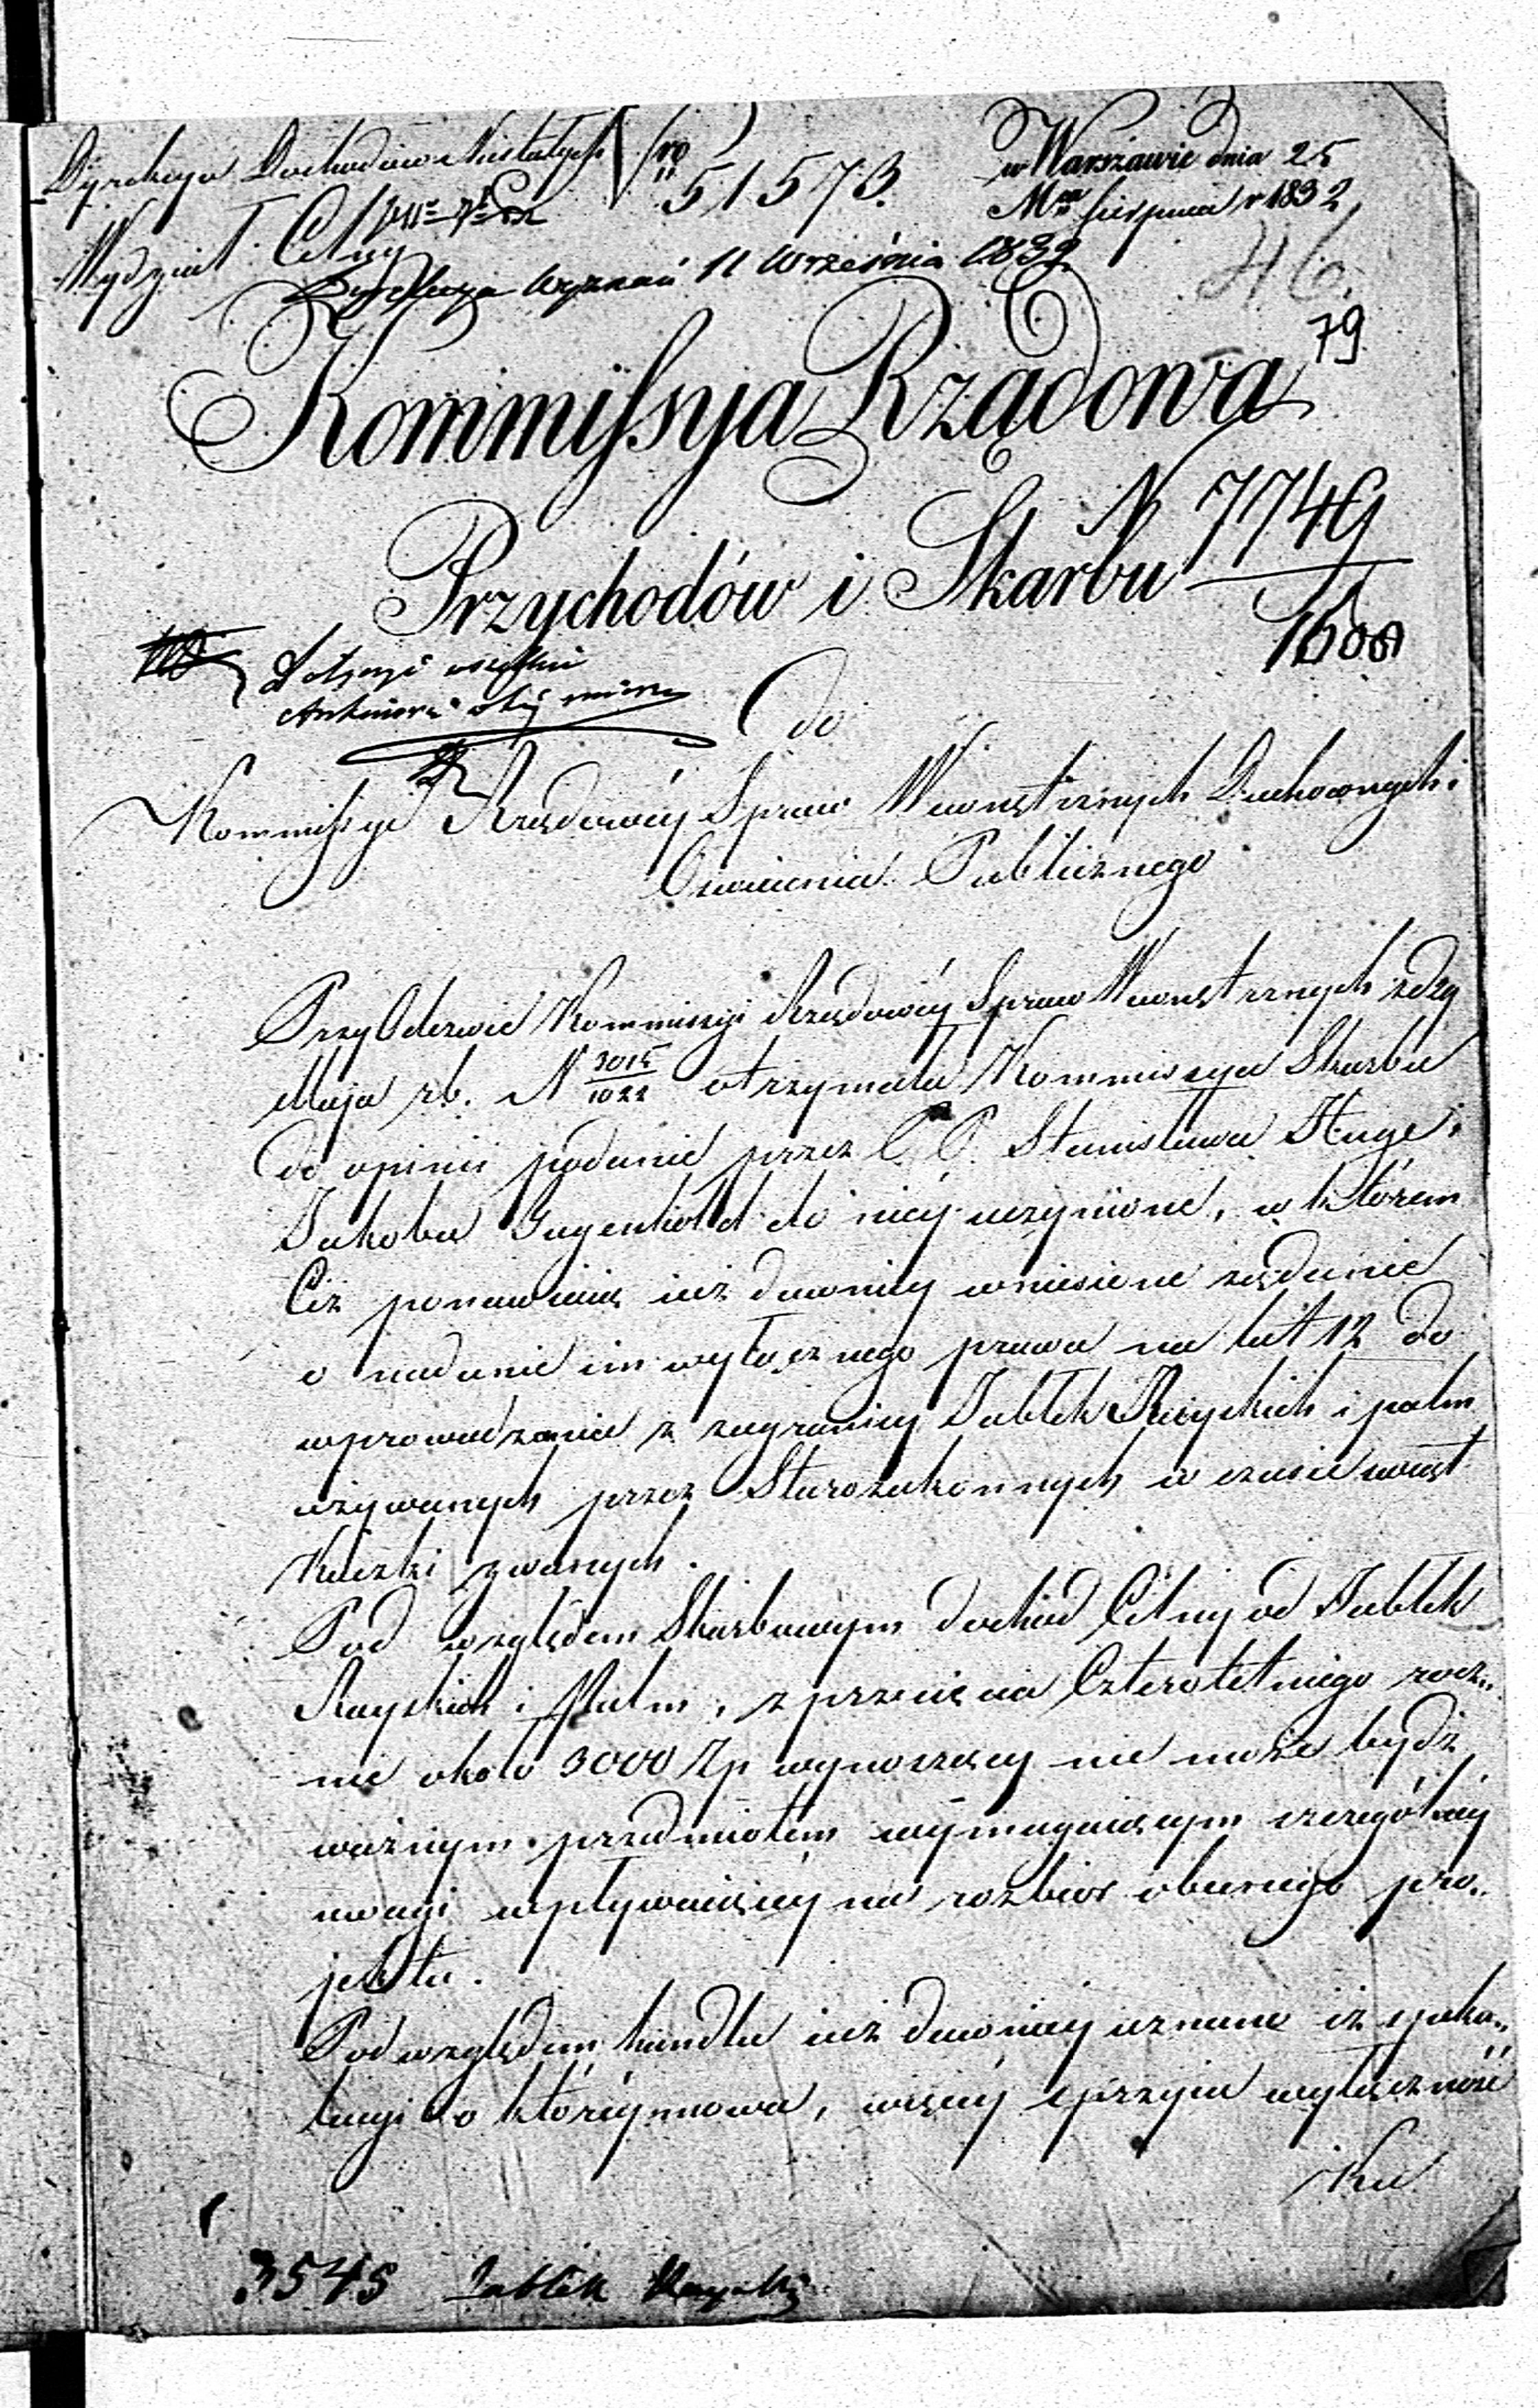 Dyrekcya Dochodów Niestałych
Nro 51573.
w Warszawie dnia 25
Mca Sierpnia r 1832
Wydział Celny
Dyrekcya Wyznań 11 Września 1832
46.
79
Kommissya Rządowa
N 7749
Przychodów i Skarbu
1600
do
Kommissyi Rządowéy Spraw Wewnętrznych Duchownych i
Oświecenia Publicznego
Przy Odezwie Kommissyi Rządowéy Spraw Wewnętrznych z d 29
Maja r b. N 3015/1022 otrzymała Kommissya Skarbu
do opinii podanie przez C. P. Stanisława Huge i
Jakoba Tugenhold do niéy uczynione, w którem
Ciż ponawiaią iuż dawniey wniesione żądanie
o nadanie im wyłącznego prawa na lat 12 do
wprowadzania z zagranicy Jabłek Rayskich i palm
używanych przez Starozakonnych w czasie świąt
Kuczki zwanych.
Pod względem Skarbowym dochód Celny od Jabłek
Rayskich i Palm, z przecięcia Czteroletniego rocz„
nie około 3000 Zp wynoszący nie może bydź
ważnym przedmiotem wymagaiącym szczególnéy
uwagi wpływaiącéy na rozbiór obecnego pro„
jektu.
Pod względem handlu iuż dawniey uznano iż speku„
lacyi o któréy mowa, więcéy sprzyia wyłączność
Ku
3545 Jabłek Rayskich